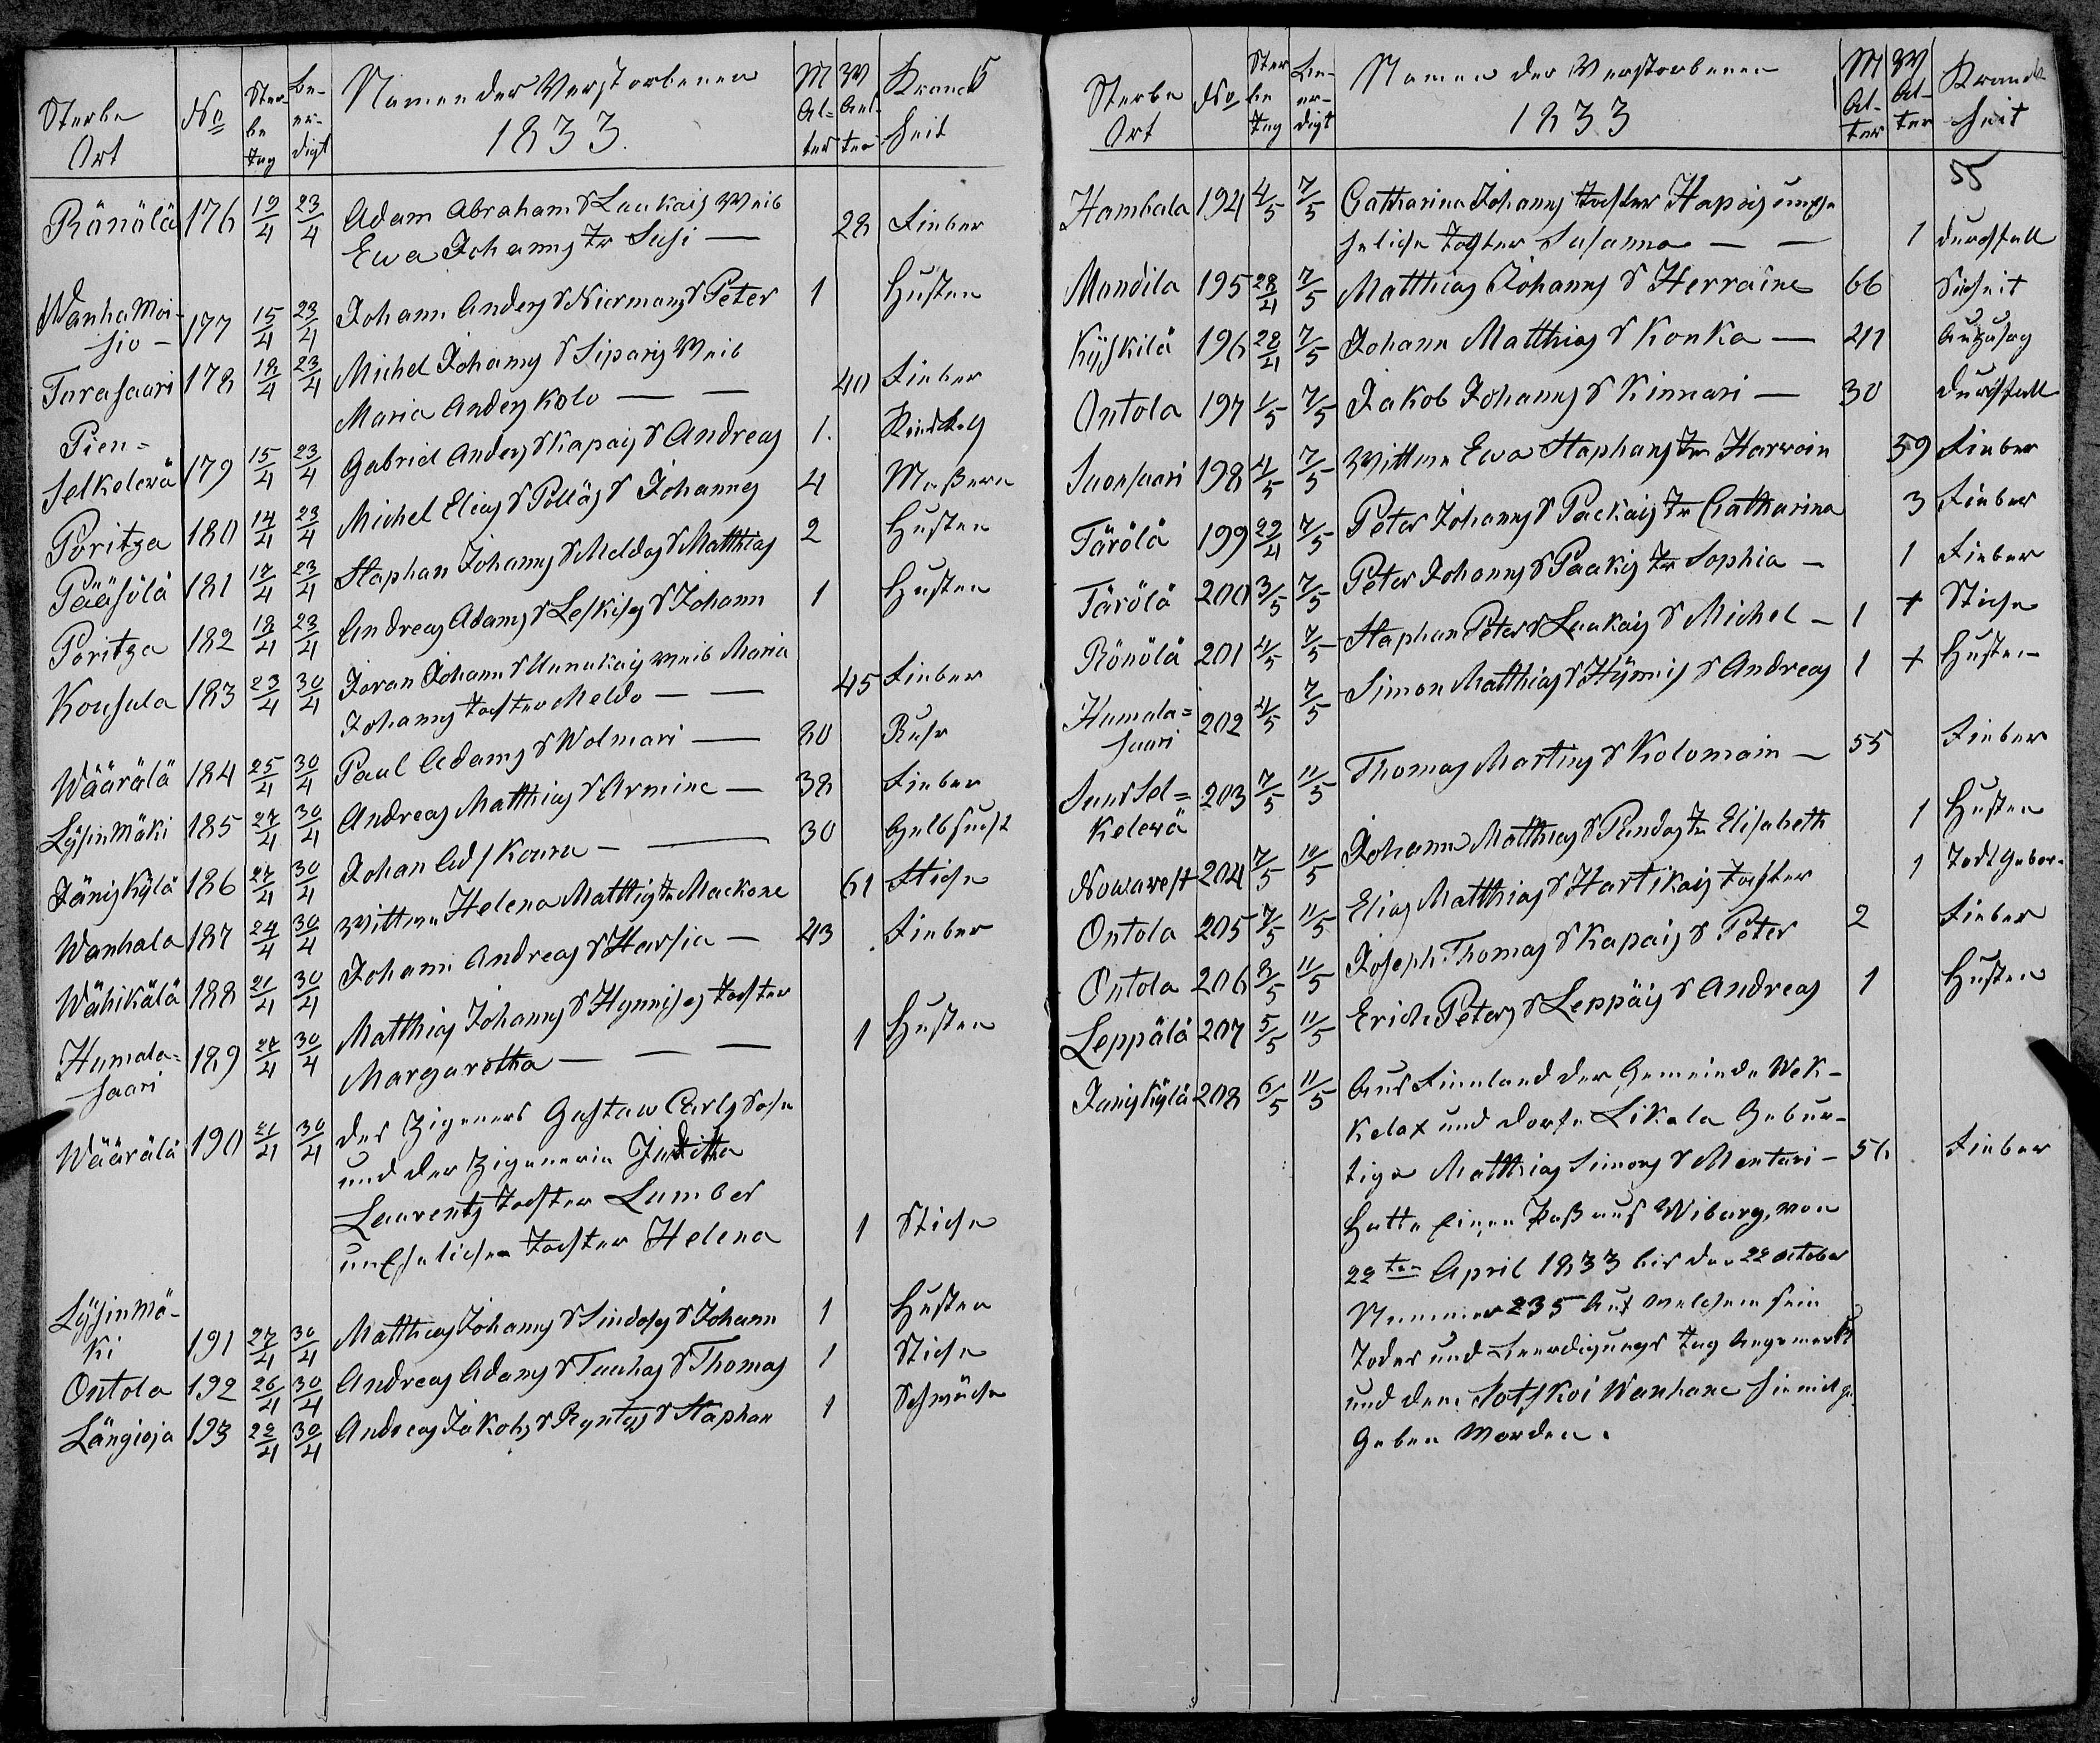 Sterbe Ort No Sterbe tag beerdigt Namen der Verstorbenen 1833. M Alter W Alter Kranckheit
Ränälä 176 19/4 23/4 Adam Abrahams S Laukais Weib
Ewa Johanns Tr Susi — 28 Fieber
Wanha Moisio — 177 15/4 23/4 Johann Anders S Niermans S Peter 1 Husten
Tarasaari 178 18/4 23/4 Michel Johanns S Siparis Weib
Maria Anders Kolo — — 40 Fieber
Pien=
selkelewä 179 15/4 23/4 Gabriel Anders S Kapais S Andreas 1.
Poritza 180 14/4 23/4 Michel Elias S Pölläs S Johannes 4 Maßern
Pääsölä 181 17/4 23/4 Staphan Johanns S Meldos S Matthias 2 Husten
Poritza 182 18/4 23/4 Andreas Adams S Leskises S Johann 1 Husten
Kousula 183 23/4 30/4 Jöran Johann S Unnukais Weib Maria
Johanns tochter Meldo — — 45 Fieber
Wäärälä 184 25/4 30/4 Paul Adams S Wolmari — 80 Ruhr
Lysinmäki 185 27/4 30/4 Andreas Matthias S Armine — 38 Fieber
Jäniskylä 186 27/4 30/4 Johan Ad S Koura — — 30 Gelbsucht
Wanhala 187 24/4 30/4 Wittwe Helena Matthis Tr Mackone 61 Stiche
Wähikälä 188 21/4 30/4 Johann Andreas S Harsia — 43 Fieber
Humala=
saari 189 27/4 30/4 Matthias Johanns S Hynnises tochter
Margaretha — — — 1 Husten
Wäärälä 190 21/4 30/4 des Zigeuners Gustaw Carls Sohn
und der Zigeunerin Juditha
Laurentz tochter Lumber
unehelichen tochter Helena 1 Stiche
Lysinmä-
ki 191 27/4 30/4 Matthias Johanns S Sindoses S Johann 1 Husten
Ontola 192 26/4 30/4 Andreas Adams S Tauhas S Thomas 1 Stiche
Längioja 193 29/4 30/4 Andreas Jakobs S Ryntys S Staphan 1 Schwäche
Sterbe Ort No Sterbe tag Beerdigt Namen der Verstorbenen 1833 M Alter W Alter Kranckheit
55
Hambala 194 4/5 7/5 Catharina Johanns tochter Hapois unehe
heliche tochter Susanna — — 1 durchfall
Mandila 195 28/4 7/5 Matthias Johanns S Herraine 66
Kyskilä 196 28/4 7/5 Johann Matthias S Konka —
Ontola 197 1/5 7/5 Jakob Johanns S Kinnari — 30 durchfall
Suonsaari 198 4/5 7/5 Wittwe Ewa Staphans Tr Harwoin 59 Fieber
Tärölä 199 29/4 7/5 Peter Johanns S Packais Tr Catharina 3 Fieber
Tärölä 200 3/5 7/5 Peter Johanns S Paakis Tr Sophia — 1 Fieber
Rönölä 201 4/5 7/5 Staphan Peter S Laukais S Michel — 1 + Stiche
Humala=
saari 202 4/5 7/5 Simon Matthias S Hÿnnis S Andreas 1 + Husten
Suur Sel=
kelewä 203 7/5 11/5 Thomas Martins S Kolomain — 55 Fieber
Nowawest 204 7/5 10/5 Johann Matthias S Pundas Tr Elisabeth 1 Husten
Ontola 205 7/5 11/5 Elias Matthias S Hartikais tochter 1 Todtgebor-
Ontola 206 8/5 11/5 Joseph Thomas S Kapais S Peter 2 Fieber
Leppälä 207 5/5 11/5 Erich Peters S Leppäis S Andreas 1 Husten
Janiskylä 208 6/5 11/5 Aus Finnland der Gemeinde Wek-
kelax und dorfe Likala Gebur-
tige Matthias Simons S Mentari — 56 Fieber
Hatte einen Paß aus Wiburg, von
22ten April 1833 bis den 22 october
Nummer 235 Auf welchem sein
Todes und Beerdigungs tag Angemerkt
und dem Sotskoi Wanhane hiemit ge-
Geben Worden.